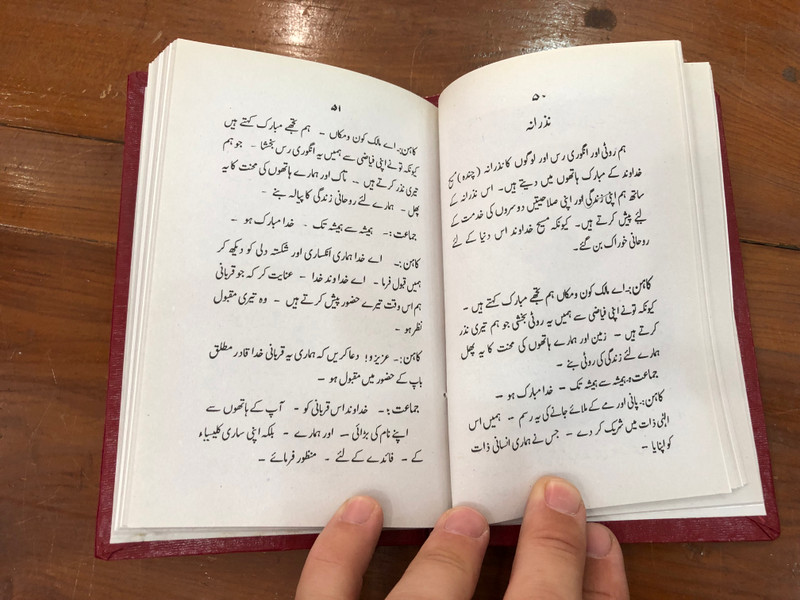 ۵۰
نذرانہ
ہم روٹی اور انگوری رس اور لوگوں کا نذرانہ (چندہ) مسیح
خداوند کے مبارک ہاتھوں میں دیتے ہیں۔ اس نذرانہ کے
ساتھ ہم اپنی زندگی اور اپنی صلاحیتیں دوسروں کی خدمت کے
لیئے پیش کرتے ہیں۔ کیونکہ مسیح خداوند اس دنیا کے لئے
روحانی خوراک بن گئے۔
کاہن:۔ اے مالک کون ومکاں ہم تجھے مبارک کہتے ہیں ۔
کیونکہ تو نے اپنی فیاضی سے ہمیں یہ روٹی بخشی جو ہم تیری نذر
کرتے ہیں ۔ زمین اور ہمارے ہاتھوں کی محنت کا یہ پھل
ہمارے لئے زندگی کی روٹی بنے ۔
جماعت:۔ ہمیشہ سے ہمیشہ تک ۔ خدا مبارک ہو ۔
کاہن:۔ پانی اور مے کے ملائے جانے کی یہ رسم ۔ ہمیں اس
الہٰی ذات میں شریک کر دے ۔ جس نے ہماری انسانی ذات
کو اپنایا ۔
۵۱
کاہن:۔ اے مالک کون ومکاں ۔ ہم تجھے مبارک کہتے ہیں
کیونکہ تو نے اپنی فیاضی سے ہمیں یہ انگوری رس بخشا ۔ جو ہم
تیری نذر کرتے ہیں ۔ تاک اور ہمارے ہاتھوں کی محنت کا یہ
پھل ۔ ہمارے لئے روحانی زندگی کا پیالہ بنے ۔
جماعت:۔ ہمیشہ سے ہمیشہ تک ۔ خدا مبارک ہو ۔
کاہن:۔ اے خدا ہماری انکساری اور شکستہ دلی کو دیکھ کر
ہمیں قبول فرما ۔ اے خداوند خدا ۔ عنایت کر کہ جو قربانی
ہم اس وقت تیرے حضور پیش کرتے ہیں ۔ وہ تیری مقبول
نظر ہو ۔
کاہن:۔ عزیزو! دعا کریں کہ ہماری یہ قربانی خدا قادر مطلق
باپ کے حضور میں مقبول ہو ۔
جماعت:۔ خداوند اس قربانی کو ۔ آپ کے ہاتھوں سے
اپنے نام کی بڑائی ۔ اور ہمارے ۔ بلکہ اپنی ساری کلیسیاء
کے ۔ فائدے کے لئے ۔ منظور فرمائے ۔